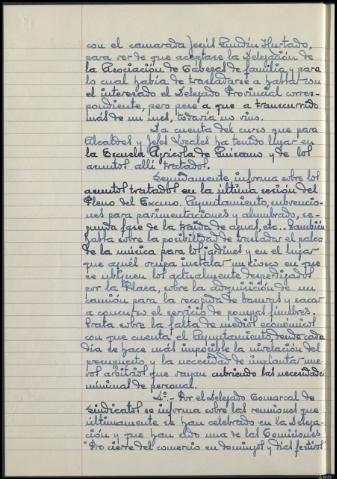 con el camarada Jesús Hurtado,
para ver de que aceptase la Delegación de
la Asociación de Cabezas de familia, y para
lo cual había de trasladarse a hablar con
el interesado el Delegado Provincial corres-
pondiente, pero pese a que a transcurrido
más de un mes, todavía no vino.
Da cuenta del curso que para
Alcaldes y Jefes Locales ha tenido lugar en
la Escuela Agrícola de Guísamo y de los
asuntos allí tratados.
Seguidamente informa sobre los
asuntos tratados en la última sesión del
Pleno del Excmo. Ayuntamiento, subvencio-
nes para pavimentaciones y alumbrado, se-
gunda fase de la traída de aguas, etc.. También
habla sobre la posibilidad de trasladar el palco
de la música para los jardines y en el lugar
que aquél ocupa instalar un kiosco en que
se ubiquen los actualmente desperdigados
por la Plaza, sobre la adquisición de un
camión para la recogida de basuras y sacar
a concurso el servicio de pompas fúnebres.
Trata sobre la falta de medios económicos
con que cuenta el Ayuntamiento, donde cada
día se hace más imposible la nivelación del
presupuesto y la necesidad de implantar nue-
vos arbitrios que vayan cubriendo las necesidades
mínimas de personal.
4º.- Por el Delegado Comarcal de
Sindicatos se informa sobre las reuniones que
últimamente se han celebrado en la Delega-
ción y que han sido una de las Comisiones
"Pro cierre del comercio en domingos y días festivos